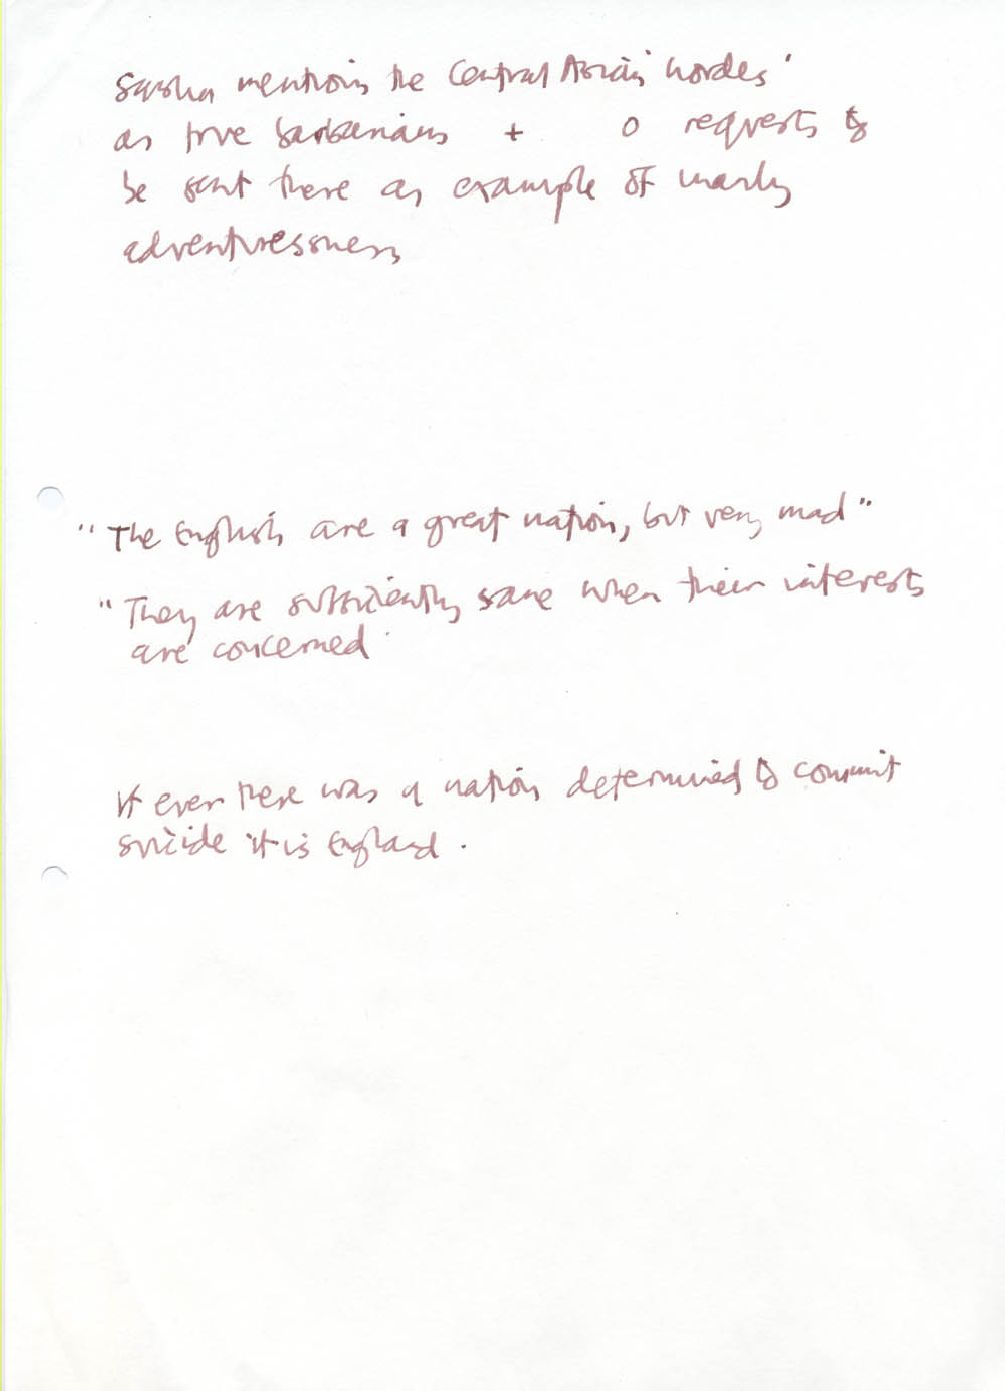 Sasha mentions the Central Asian 'hordes'
as true barbarians + O requests to
be sent there as example of manly
adventuressness
"The English are a great nation, but very mad"
"They are sufficiently sane when their interests
are concerned"
If ever there was a nation determined to commit
suicide it is England.